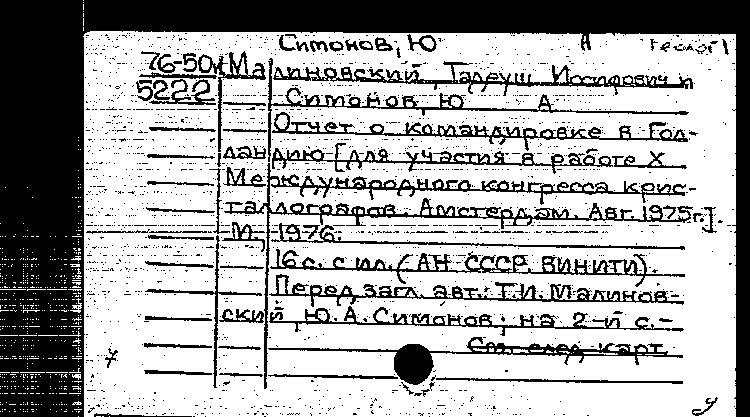 Симонов, Ю А геолог 1
76-50 Малиновский, Тадеуш Иосифович и
5222 Симонов, Ю А
Отчет о командировке в Гол-
ландию [для участия в работе X
Международного конгресса крис-
таллографов. Амстердам. Авг. 1975г.].
М., 1976.
16 с. с ил. (АН СССР. ВИНИТИ).
Перед загл. авт.: Т.И. Малинов-
ский, Ю.А. Симонов; на 2-й с.-
См. след. карт.